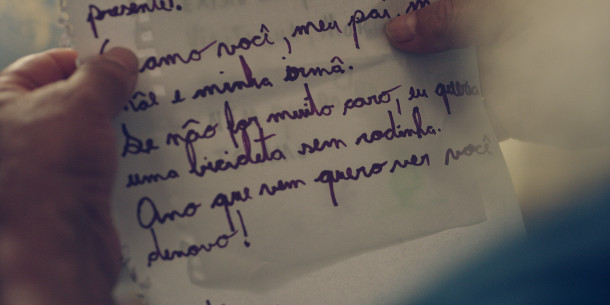 presente.
amo você, meu pai, m
e minha irmã.
Se não for muito caro, eu queria
uma bicicleta sem rodinha.
Ano que vem quero ver você
denovo!